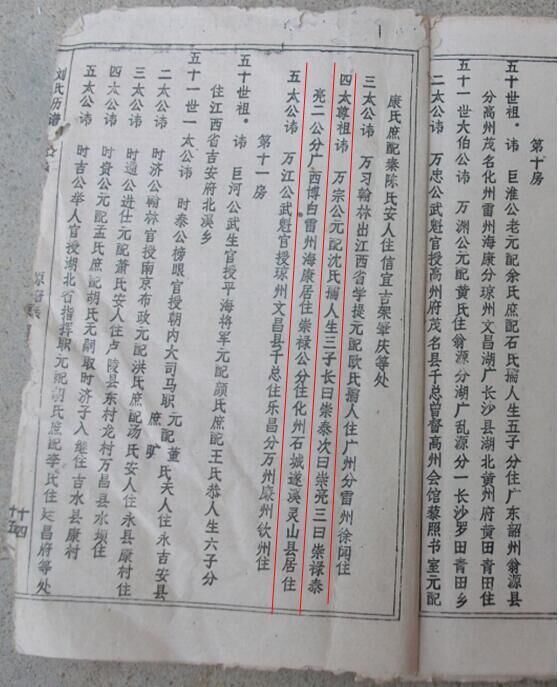 五十世祖。讳 巨淮公老元配余氏庶配石氏孺人生五子分住广东韶州翁源县
分高州茂名化州雷州海康分琼州文昌湖广长沙县湖北黄州府黄田青田住
五十一世大伯公讳 万渊公元配黄氏住翁源分湖广乱源分一长沙罗田青田乡
二太公讳 万忠公武魁官授高州府茂名县千总曾督高州会馆藜照书室元配
康氏庶配秦陈氏安人住信宜吉架肇庆等处
三太公讳 万习翰林出江西省学提元配欧氏孺人住广州分雷州徐闻住
四太尊祖讳 万宗公元配沈氏孺人生三子长曰崇泰次曰崇亮三曰崇禄泰
亮二公分广西博白雷州海康居住崇禄公分住化州石城遂溪灵山县居住
五太公讳 万江公武魁官授琼州文昌县千总住乐昌分万州廉州钦州住
第十一房
五十世祖。讳 巨河公武生官授平海将军元配颜氏庶配王氏恭人生六子分
住江西省吉安府北溪乡
五十一世一太公讳 时泰公榜眼官授朝内大司马职元配董氏夫人住永吉安县
庶 旷
二太公讳 时济公翰林官授南京布政元配洪氏庶配汤氏安人住永县康村住
三太公讳 时通公进仕元配萧氏安人住卢陵县东村龙村万昌县水坝住
四太公讳 时贵公元配孟氏庶配胡氏元嗣取时济子入继住吉水县康村
五太公讳 时吉公举人官授湖北省指挥职元配胡氏庶配李氏住延昌府等处
刘氏历谱
十四
十五